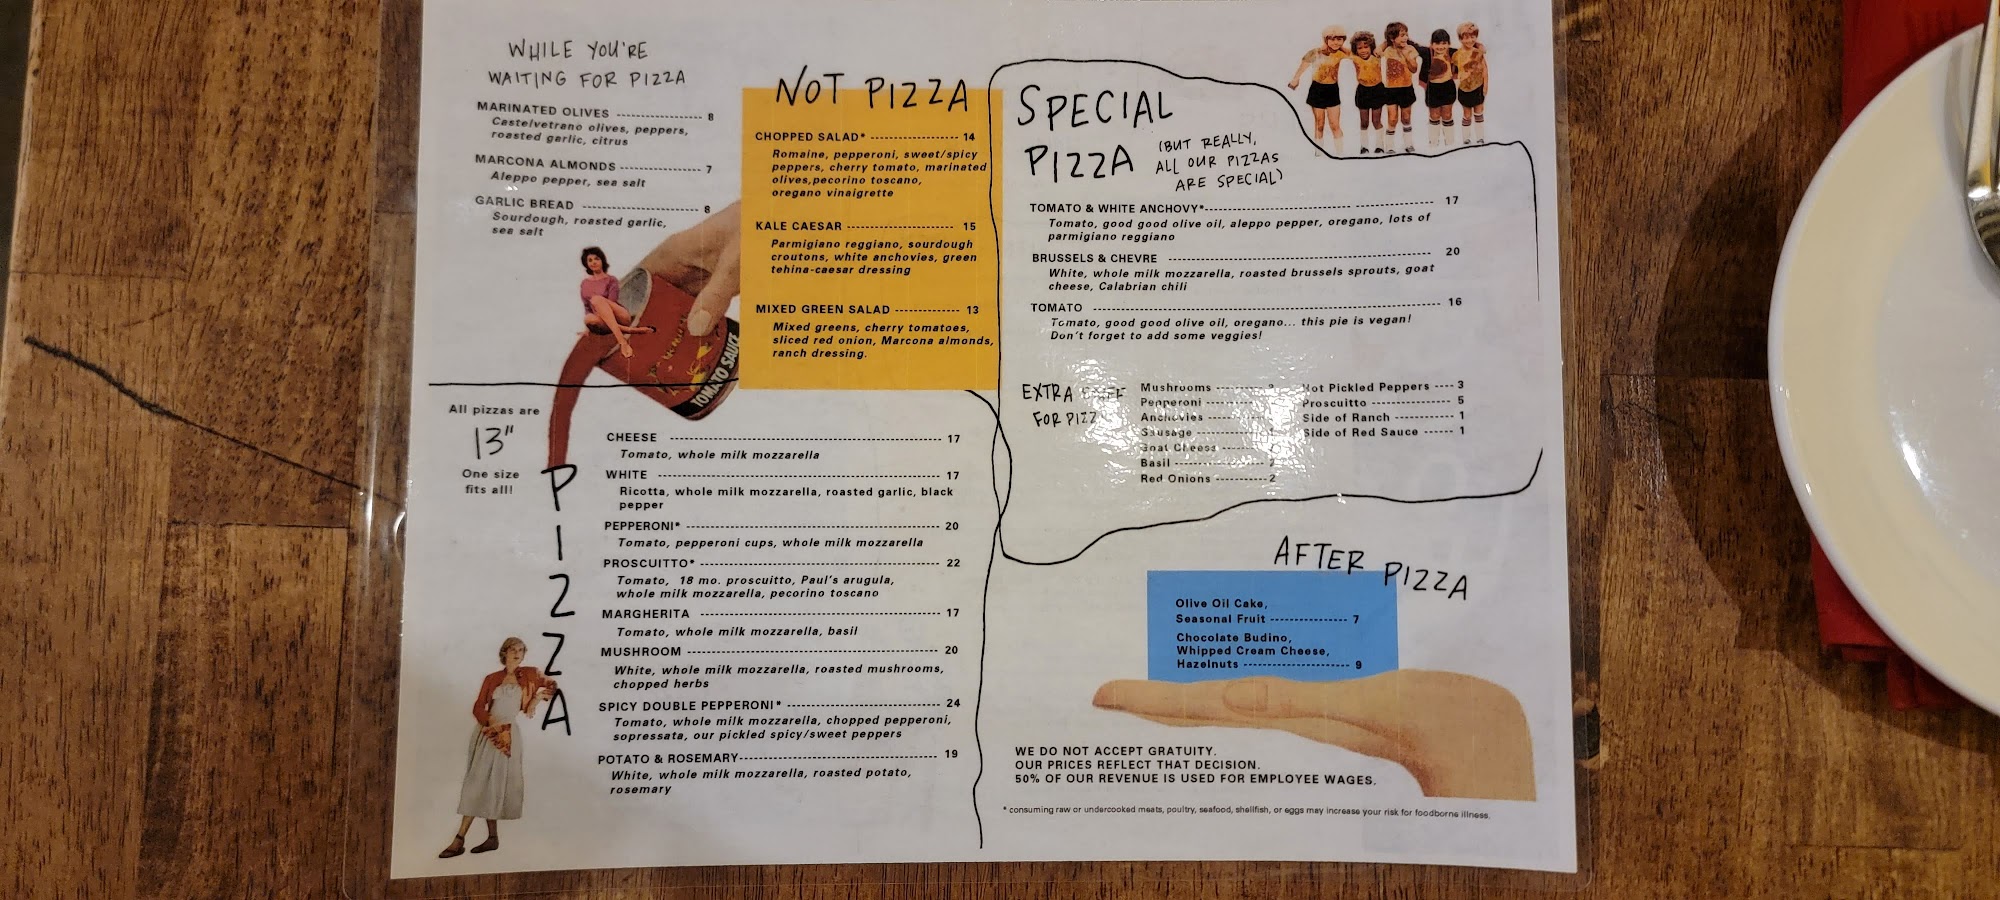 WHILE YOU'RE
WAITING FOR PIZZA
MARINATED OLIVES 8
Castelvetrano olives, peppers,
roasted garlic, citrus
MARCONA ALMONDS 7
Aleppo pepper, sea salt
GARLIC BREAD 8
Sourdough, roasted garlic,
sea salt
TOMATO SAUCE
NOT PIZZA
CHOPPED SALAD* 14
Romaine, pepperoni, sweet/spicy
peppers, cherry tomato, marinated
olives,pecorino toscano,
oregano vinaigrette
KALE CAESAR 15
Parmigiano reggiano, sourdough
croutons, white anchovies, green
tehina-caesar dressing
MIXED GREEN SALAD 13
Mixed greens, cherry tomatoes,
sliced red onion, Marcona almonds,
ranch dressing.
All pizzas are
13"
One size
fits all!
PIZZA
CHEESE 17
Tomato, whole milk mozzarella
WHITE 17
Ricotta, whole milk mozzarella, roasted garlic, black
pepper
PEPPERONI* 20
Tomato, pepperoni cups, whole milk mozzarella
PROSCUITTO* 22
Tomato, 18 mo. proscuitto, Paul's arugula,
whole milk mozzarella, pecorino toscano
MARGHERITA 17
Tomato, whole milk mozzarella, basil
MUSHROOM 20
White, whole milk mozzarella, roasted mushrooms,
chopped herbs
SPICY DOUBLE PEPPERONI* 24
Tomato, whole milk mozzarella, chopped pepperoni,
sopressata, our pickled spicy/sweet peppers
POTATO & ROSEMARY 19
White, whole milk mozzarella, roasted potato,
rosemary
SPECIAL
PIZZA
(BUT REALLY,
ALL OUR PIZZAS
ARE SPECIAL)
TOMATO & WHITE ANCHOVY* 17
Tomato, good good olive oil, aleppo pepper, oregano, lots of
parmigiano reggiano
BRUSSELS & CHEVRE 20
White, whole milk mozzarella, roasted brussels sprouts, goat
cheese, Calabrian chili
TOMATO 16
Tomato, good good olive oil, oregano... this pie is vegan!
Don't forget to add some veggies!
EXTRA
FOR
Mushrooms
Pepperoni
Anchovies
Sausage
Goat Cheese
Basil 2
Red Onions 2
Hot Pickled Peppers 3
Proscuitto 5
Side of Ranch 1
Side of Red Sauce 1
AFTER PIZZA
Olive Oil Cake,
Seasonal Fruit 7
Chocolate Budino,
Whipped Cream Cheese,
Hazelnuts 9
WE DO NOT ACCEPT GRATUITY.
OUR PRICES REFLECT THAT DECISION.
50% OF OUR REVENUE IS USED FOR EMPLOYEE WAGES.
* consuming raw or undercooked meats, poultry, seafood, shellfish, or eggs may increase your risk for foodborne illness.